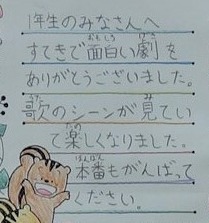 1年生のみなさんへ
すてきで面白い劇を
ありがとうございました。
歌のシーンが見てい
て楽しくなりました。
本番もがんばって
ください。